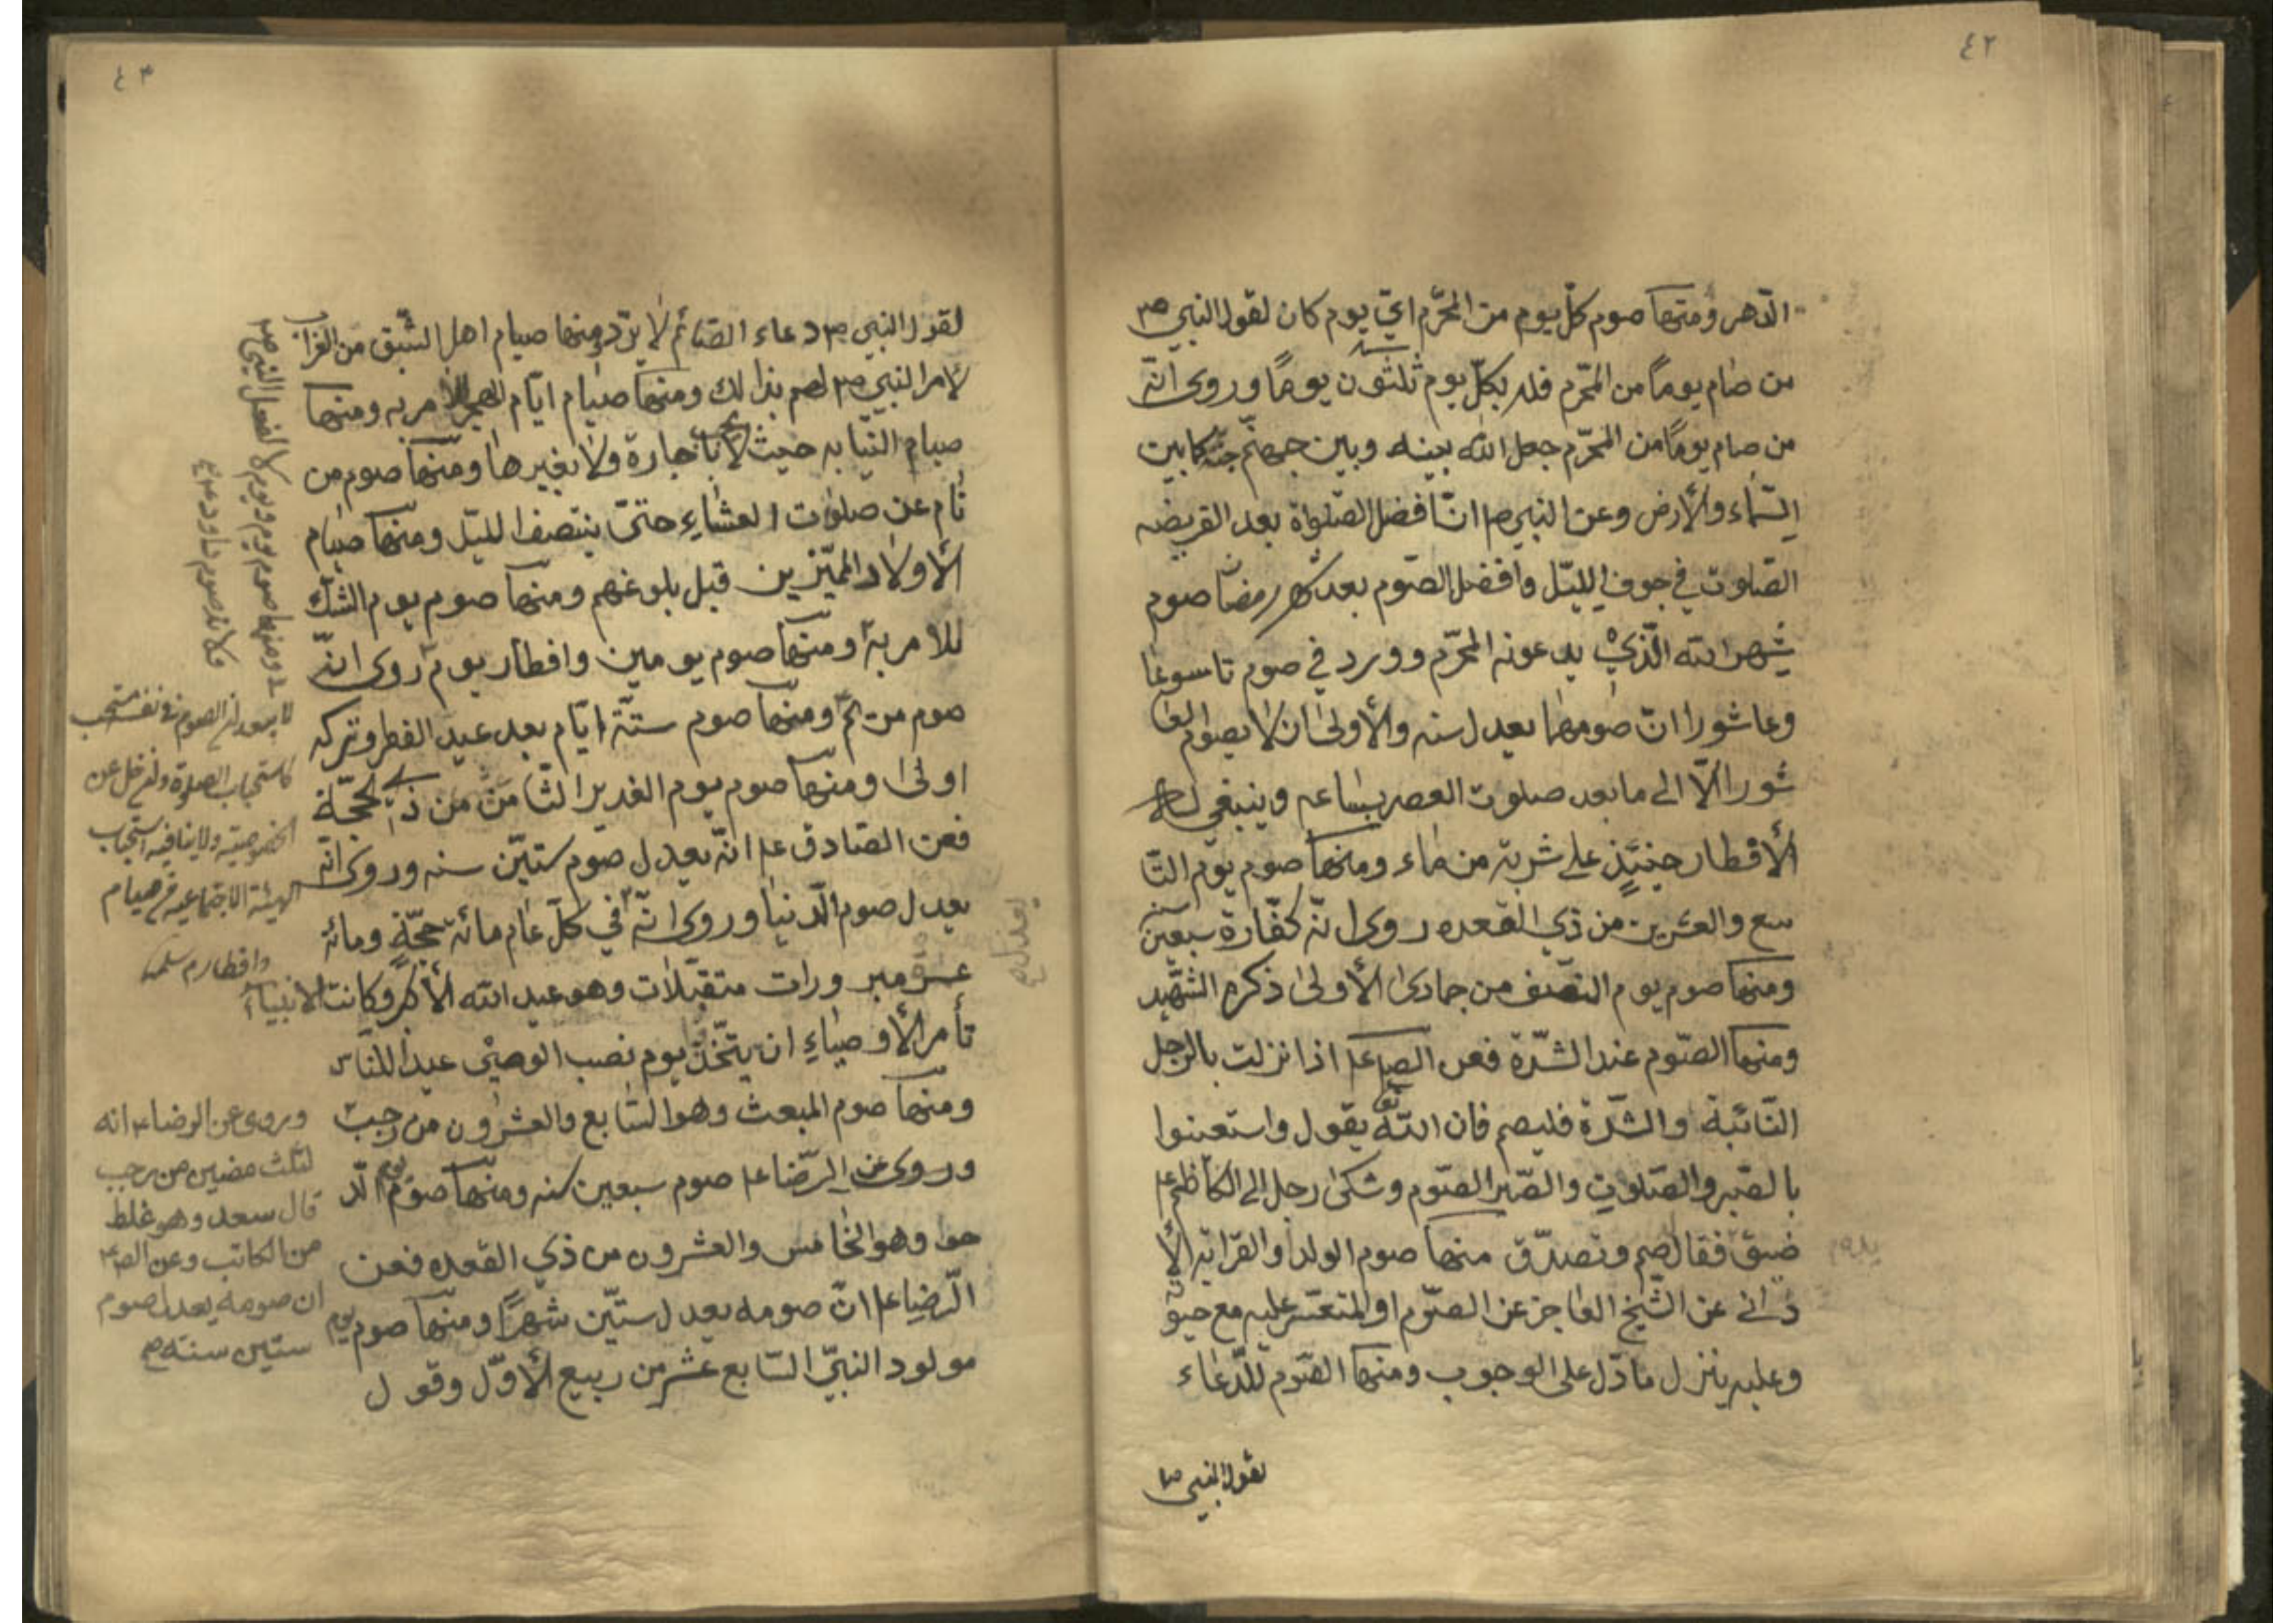 ٤٢
الدّهر ومنها صوم كلّ يوم من المحرّم ايّ يوم كان لقول النبي ص
من صام يوماً من المحرّم فله بكلّ يوم ثلثون يوماً وروى انّه
من صام يوماً من المحرّم جعل الله بينه وبين جهنّم جنّة كما بين
السّماء والأرض وعن النبي ص انّ افضل الصّلواة بعد الفريضه
الصّلوت في جوف الليّل وافضل الصّوم بعد شهر رمضان صوم
شهر الله الّذي يدعونه المحرّم وورد في صوم تاسوعا
وعاشورا انّ صومهما يعدل سنه والأولى ان لا يصوم العا
شورا الّا الى ما بعد صلوت العصر بساعه وينبغي له
الأفطار حينئذٍ على شربة من ماء ومنها صوم يوم التّا
سع والعشرين من ذي القعده روى انّه كفّارة سبعين سنه
ومنها صوم يوم النّصف من جمادى الأولى ذكره الشّهيد
ومنها الصّوم عند الشّدّة فعن الص ع اذا نزلت بالرجل
النّائبة والشّدّة فليصم فان الله تع يقول واستعينوا
بالصّبر والصّلوت والصّبر الصّوم وشكى رجل الى الكاظم ع
ضيق فقال صم وتصدّق منها صوم الولد او القرابة الأ
دانى عن الشّيخ العاجز عن الصّوم او المتعسّر عليه مع حيوته
وعليه ينزل ما دّل على الوجوب ومنها الصّوم للدّعاء
لقول النبي ص
٤٣
لقول النبي ص دعاء الصّائم لا يردّ ومنها صيام اهل الشّبق من العزاب
لأمر النبي ص لهم بذالك ومنها صيام ايّام للأمر به ومنها
صيام النّيابه حيث لا يجب باجارة ولا بغيرها ومنها صوم من
نام عن صلوت العشاء حتىّ ينتصف الليّل ومنها صيام
الأولاد المميّزين قبل بلوغهم ومنها صوم يوم الشّك
للامر به ومنها صوم يومين وافطار يوم روى انّه
صوم مريم ومنها صوم ستّة ايّام بعد عيد الفطر وتركه
اولى ومنها صوم يوم الغدير الثّامن من ذي الحجّة
فعن الصّادق ع انّه يعدل صوم ستّين سنه وروى انّه
يعدل صوم الدّنيا وروى انّه في كلّ عام مائة حجّة ومائة
عمرة مبرورات متقبّلات وهو عيد الله الأكبر وكانت الانبياء
تأمر الأوصياء ان يتّخذوا يوم نصب الوصي عيداً للنّاس
ومنها صوم المبعث وهو السّابع والعشرون من رجب
وروى عن الرّضا ع صوم سبعين سنه ومنها صوم يوم الدّ
حو وهو الخامس والعشرون من ذي القعده فعن
الرّضا ع انّ صومه يعدل ستّين شهراً ومنها صوم يوم
مولود النبيّ السّابع عشر من ربيع الأوّل وقول
ومنها صوم يوم ويوم لا لفعل النبي ص
فكانه صوم داود ع
لا يبعد ان الصوم في نفسه مستحب
كاستحباب الصلوة ولم خل عن
الخصوصية ولا ينافيه استحباب
الهيئة الاجتماعية في صيام
وافطار م سلمه
وروى عن الرضا ع انه
لثلث مضين من رجب
قال سعد وهو غلط
من الكاتب وعن الص ع
ان صومه يعدل صوم
ستين سنة ص